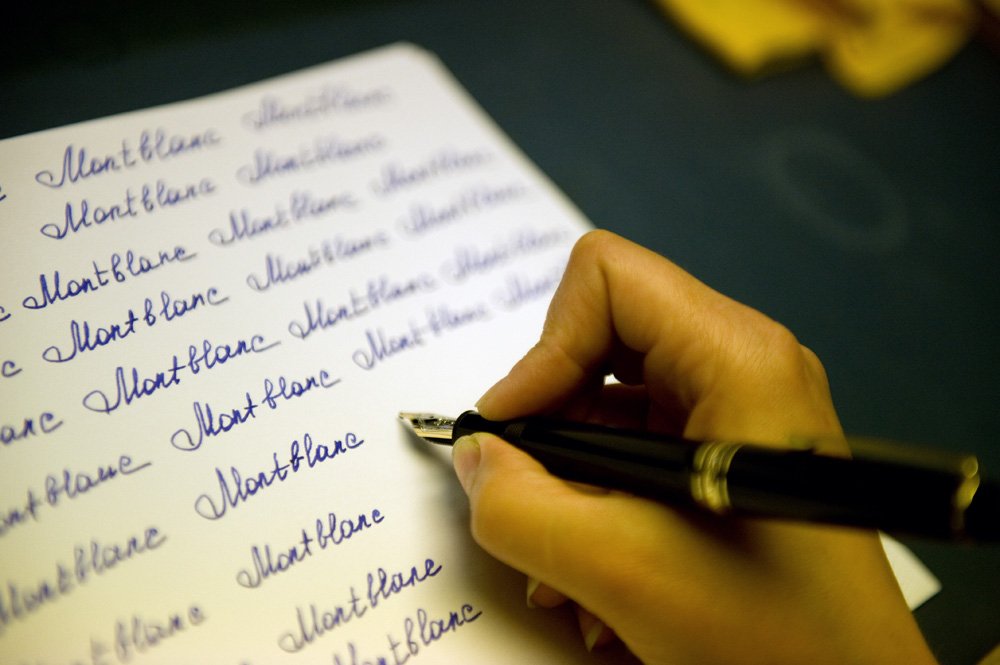 Montblanc Montblanc
Montblanc Montblanc
Montblanc Montblanc Montblanc
Montblanc Montblanc Montblanc
anc Montblanc Montblanc Montblanc
ontblanc Montblanc Montblanc
Montblanc Montblanc
Montblanc Montblanc
Montblanc
Montblanc